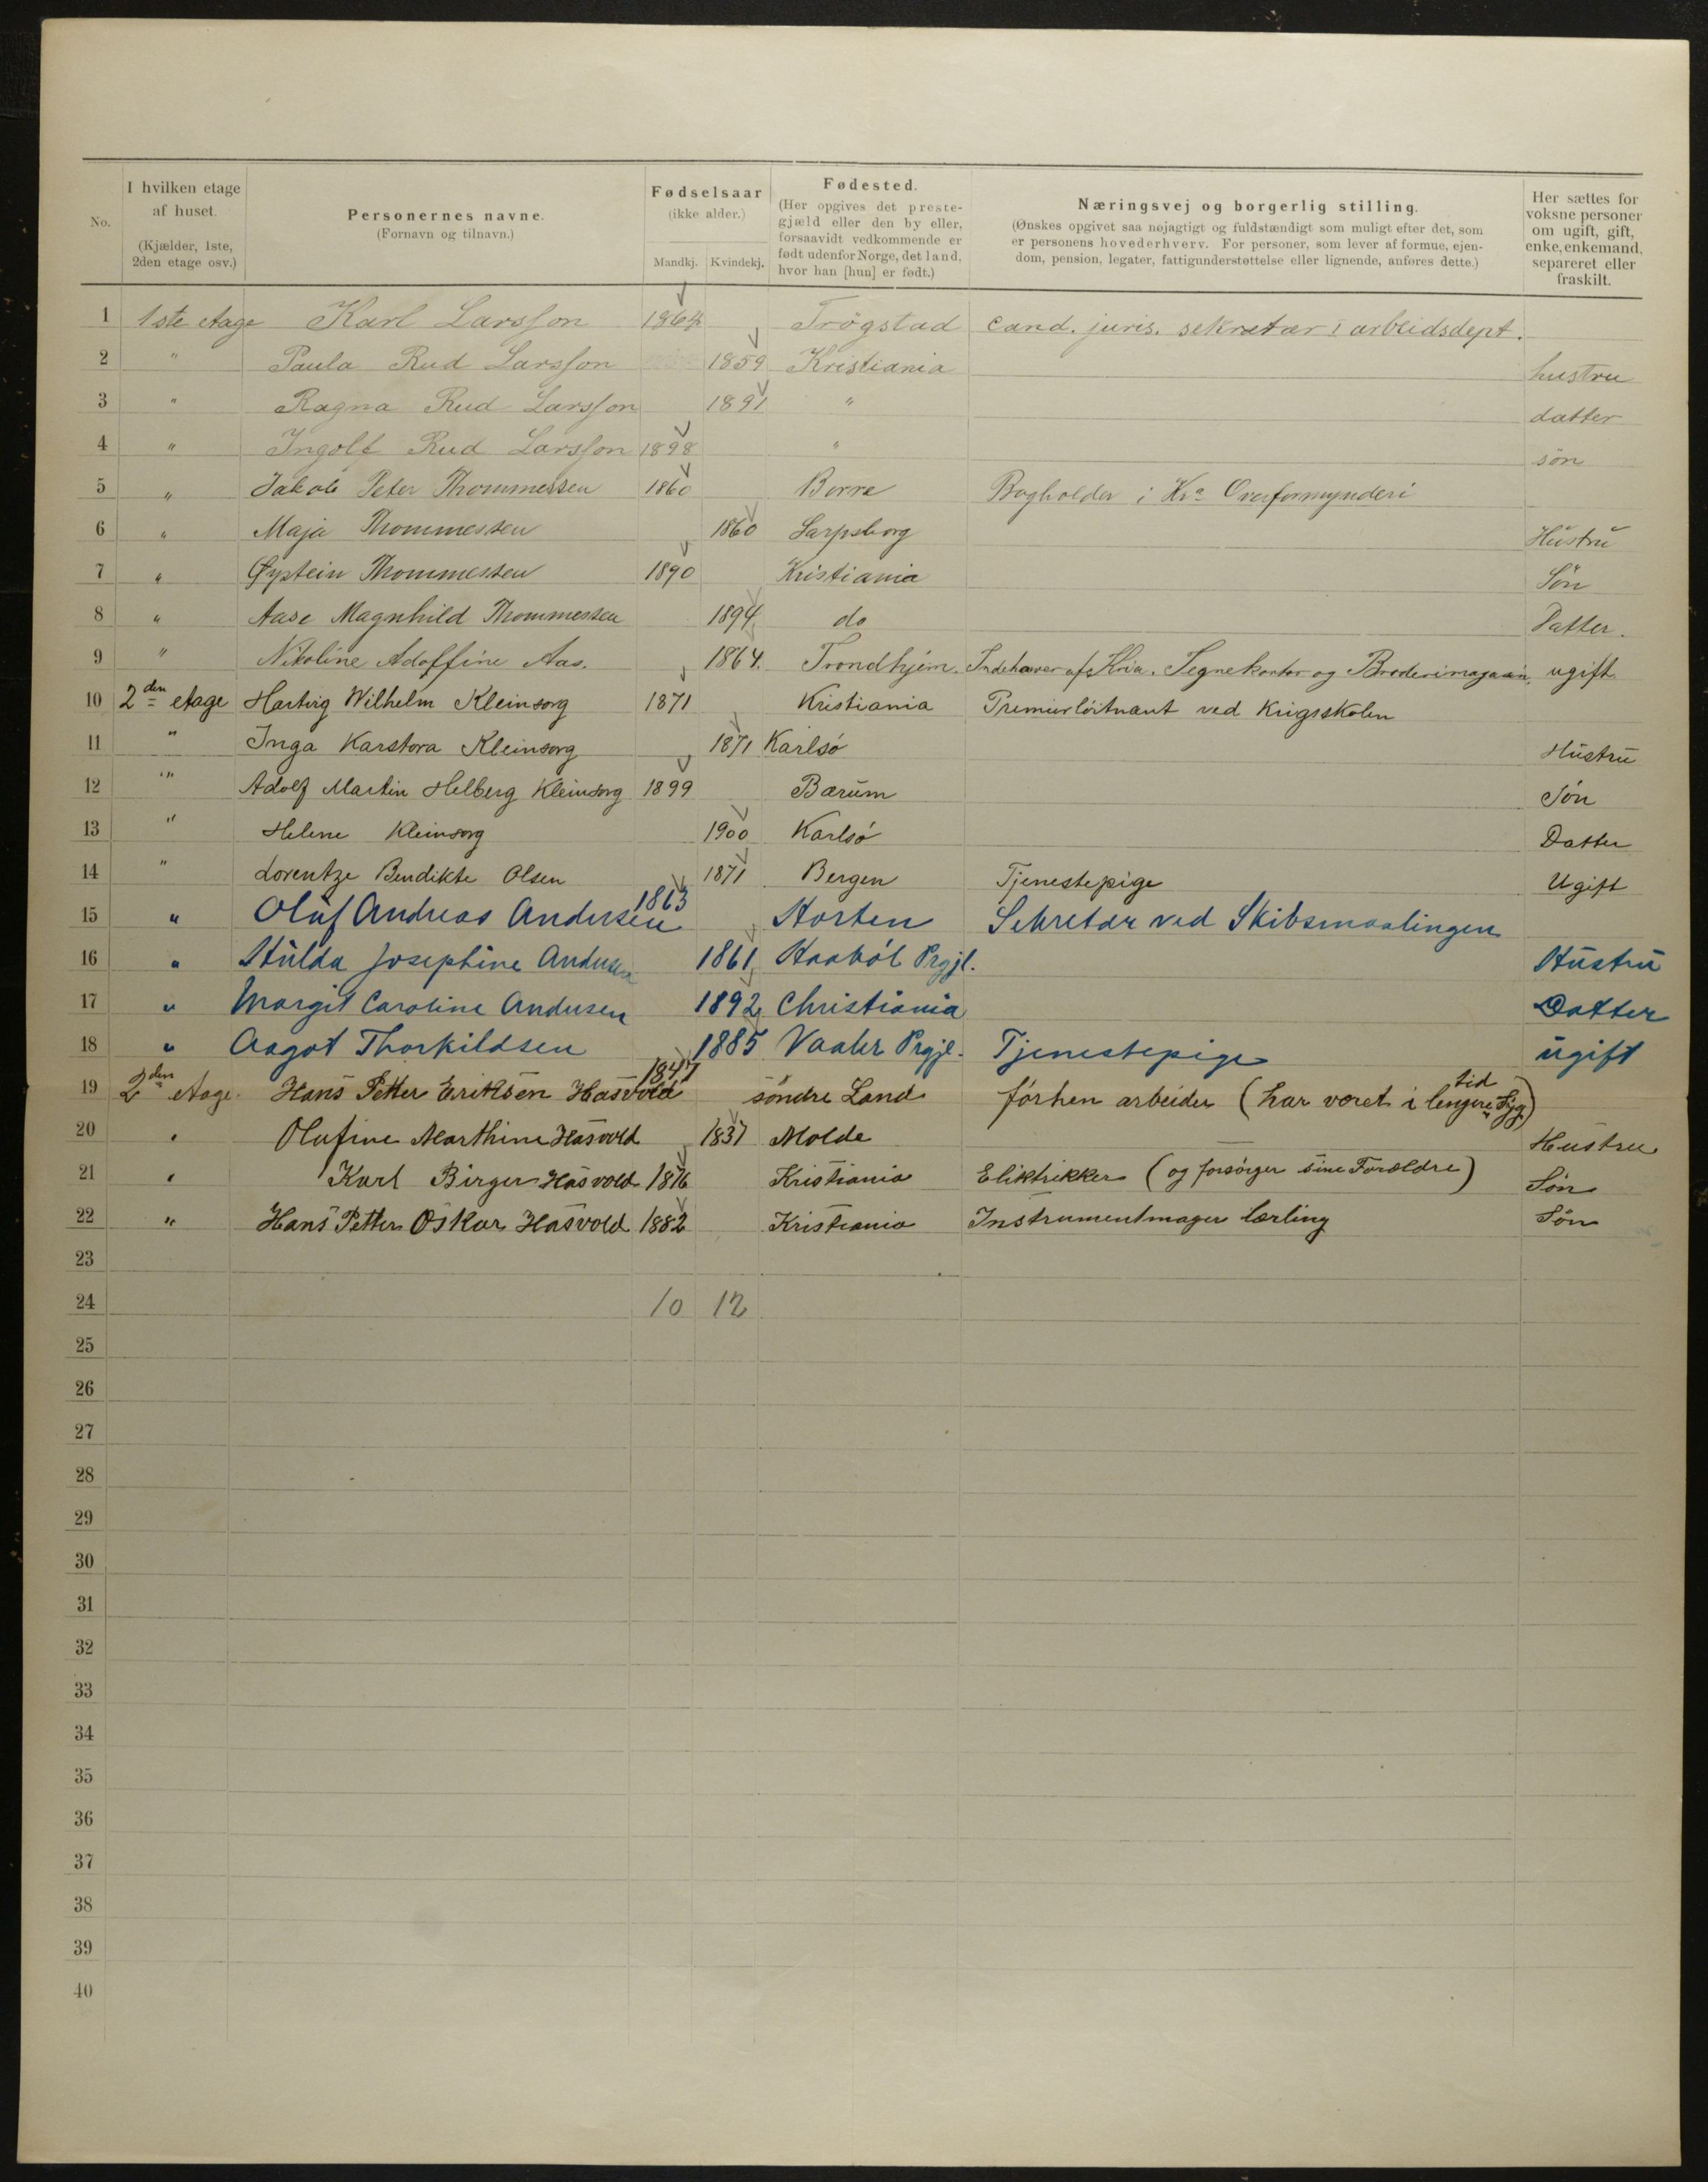 No.
I hvilken etage af huset. (Kjælder, 1ste, 2den etage osv.)
Personernes navne. (Fornavn og tilnavn.)
Fødselsaar (ikke alder.) Mandkj. Kvindekj.
Fødested. (Her opgives det prestegjæld eller den by eller, forsaavidt vedkommende er født udenfor Norge, det land, hvor han [hun] er født.)
Næringsvej og borgerlig stilling. (Ønskes opgivet saa nøjagtigt og fuldstændigt som muligt efter det, som er personens hovederhverv. For personer, som lever af formue, ejendom, pension, legater, fattigunderstøttelse eller lignende, anføres dette.)
Her sættes for voksne personer om ugift, gift, enke, enkemand, separeret eller fraskilt.
1 1ste etage Karl Larsson 1864 Trögstad cand. juris. sekretær i arbeidsdept.
2 " Paula Rud Larsson 1859 Kristiania hustru
3 " Ragna Rud Larsson 1891 " datter
4 " Ingolf Rud Larsson 1898 " sön
5 " Jakob Peter Thommessen 1860 Borre Bogholder i Kra Overformynderi
6 " Maja Thommessen 1860 Sarpsborg Hustru
7 " Øystein Thommessen 1890 Kristiania Sön
8 " Aase Magnhild Thommessen 1894 do Datter.
9 " Nikoline Adolffine Aas. 1864. Trondhjem. Indehaver af Kria. Tegnekontor og Broderimagasin. ugift
10 2den etage Hartvig Wilhelm Kleinsorg 1871 Kristiania Premierlöitnant ved Krigsskolen
11 " Inga Karstora Kleinsorg 1871 Karlsö Hustru
12 " Adolf Martin Helberg Kleinsorg 1899 Bærum Sön
13 " Helene Kleinsorg 1900 Karlsö Datter
14 " Lorentze Bendikte Olsen 1871 Bergen Tjenestepige Ugift
15 " Oluf Andreas Andersen 1863 Horten Sekretær ved Skibsmaalingen
16 " Hulda Josephine Andersen 1861 Haaböl Prgjl. Hustru
17 " Margit Caroline Andersen 1892 Christiania Datter
18 " Aagot Thorkildsen 1885 Vaaler Prgjl. Tjenestepige ugift
19 2den etage. Hans Petter Eriksen Hasvold 1847 söndre Land förhen arbeider (har været i lengere tid syg)
20 " Olufine Marthine Hasvold 1837 Molde — Hustru
21 " Karl Birger Hasvold 1876 Kristiania Eliktrikker (og forsörger sine Forældre) Sön
22 " Hans Petter Oskar Hasvold 1882 Kristiania Instrumentmager lærling Sön
23
24 10 12
25
26
27
28
29
30
31
32
33
34
35
36
37
38
39
40